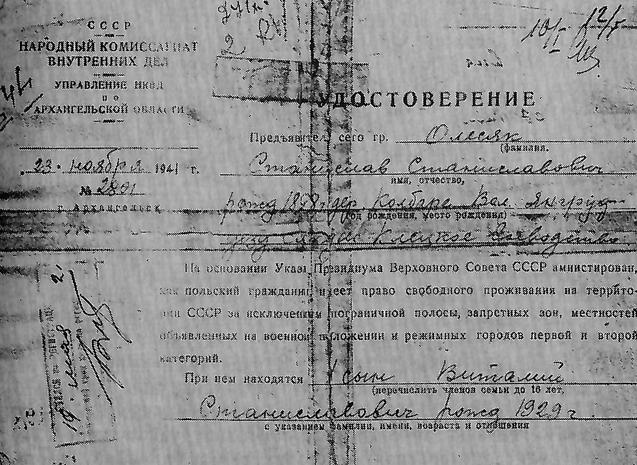 СССР
НАРОДНЫЙ КОМИССАРИАТ
ВНУТРЕННИХ ДЕЛ
УПРАВЛЕНИЕ НКВД
по
АРХАНГЕЛЬСКОЙ ОБЛАСТИ
23 ноября 1941 г.
№ 2801
г. Архангельск
УДОСТОВЕРЕНИЕ
Предъявитель сего гр. Олесяк
(фамилия.
Станислав Станиславович
имя, отчество,
рожд 1898 дер. Вол.
год рождения, место рождения)
На основании Указа Президиума Верховного Совета СССР амнистирован,
как польский гражданин, имеет право свободного проживания на террито-
рии СССР за исключением пограничной полосы, запретных зон, местностей
объявленных на военном положении и режимных городов первой и второй
категорий.
При нем находятся 1 сын Виталий
(перечислить членов семьи до 16 лет,
Станиславович рожд 1929 г.
с указанием фамилии, имени, возраста и отношения